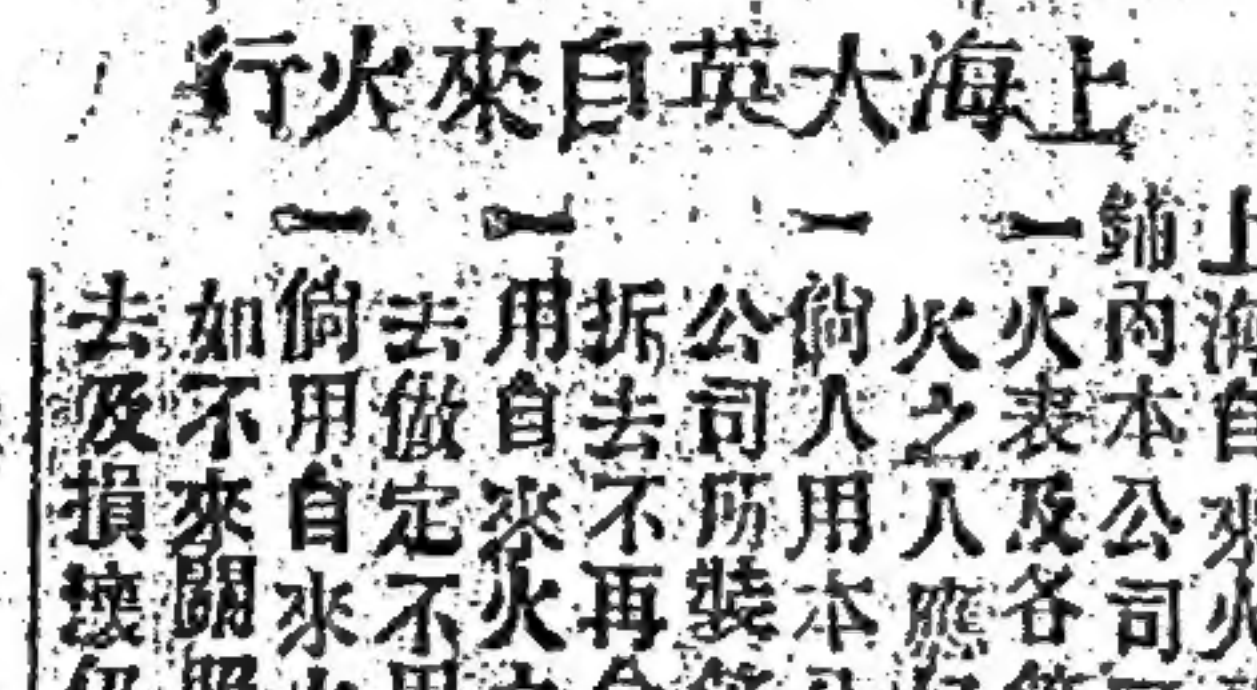 上海大英自來火行
上海自來火
鋪內本公司一
一火表及各
火之人應
一倘人用本
公司所裝
拆去不再
一用自來火
去做定不用
一倘用自來火
如不來關照
去及損壞仍